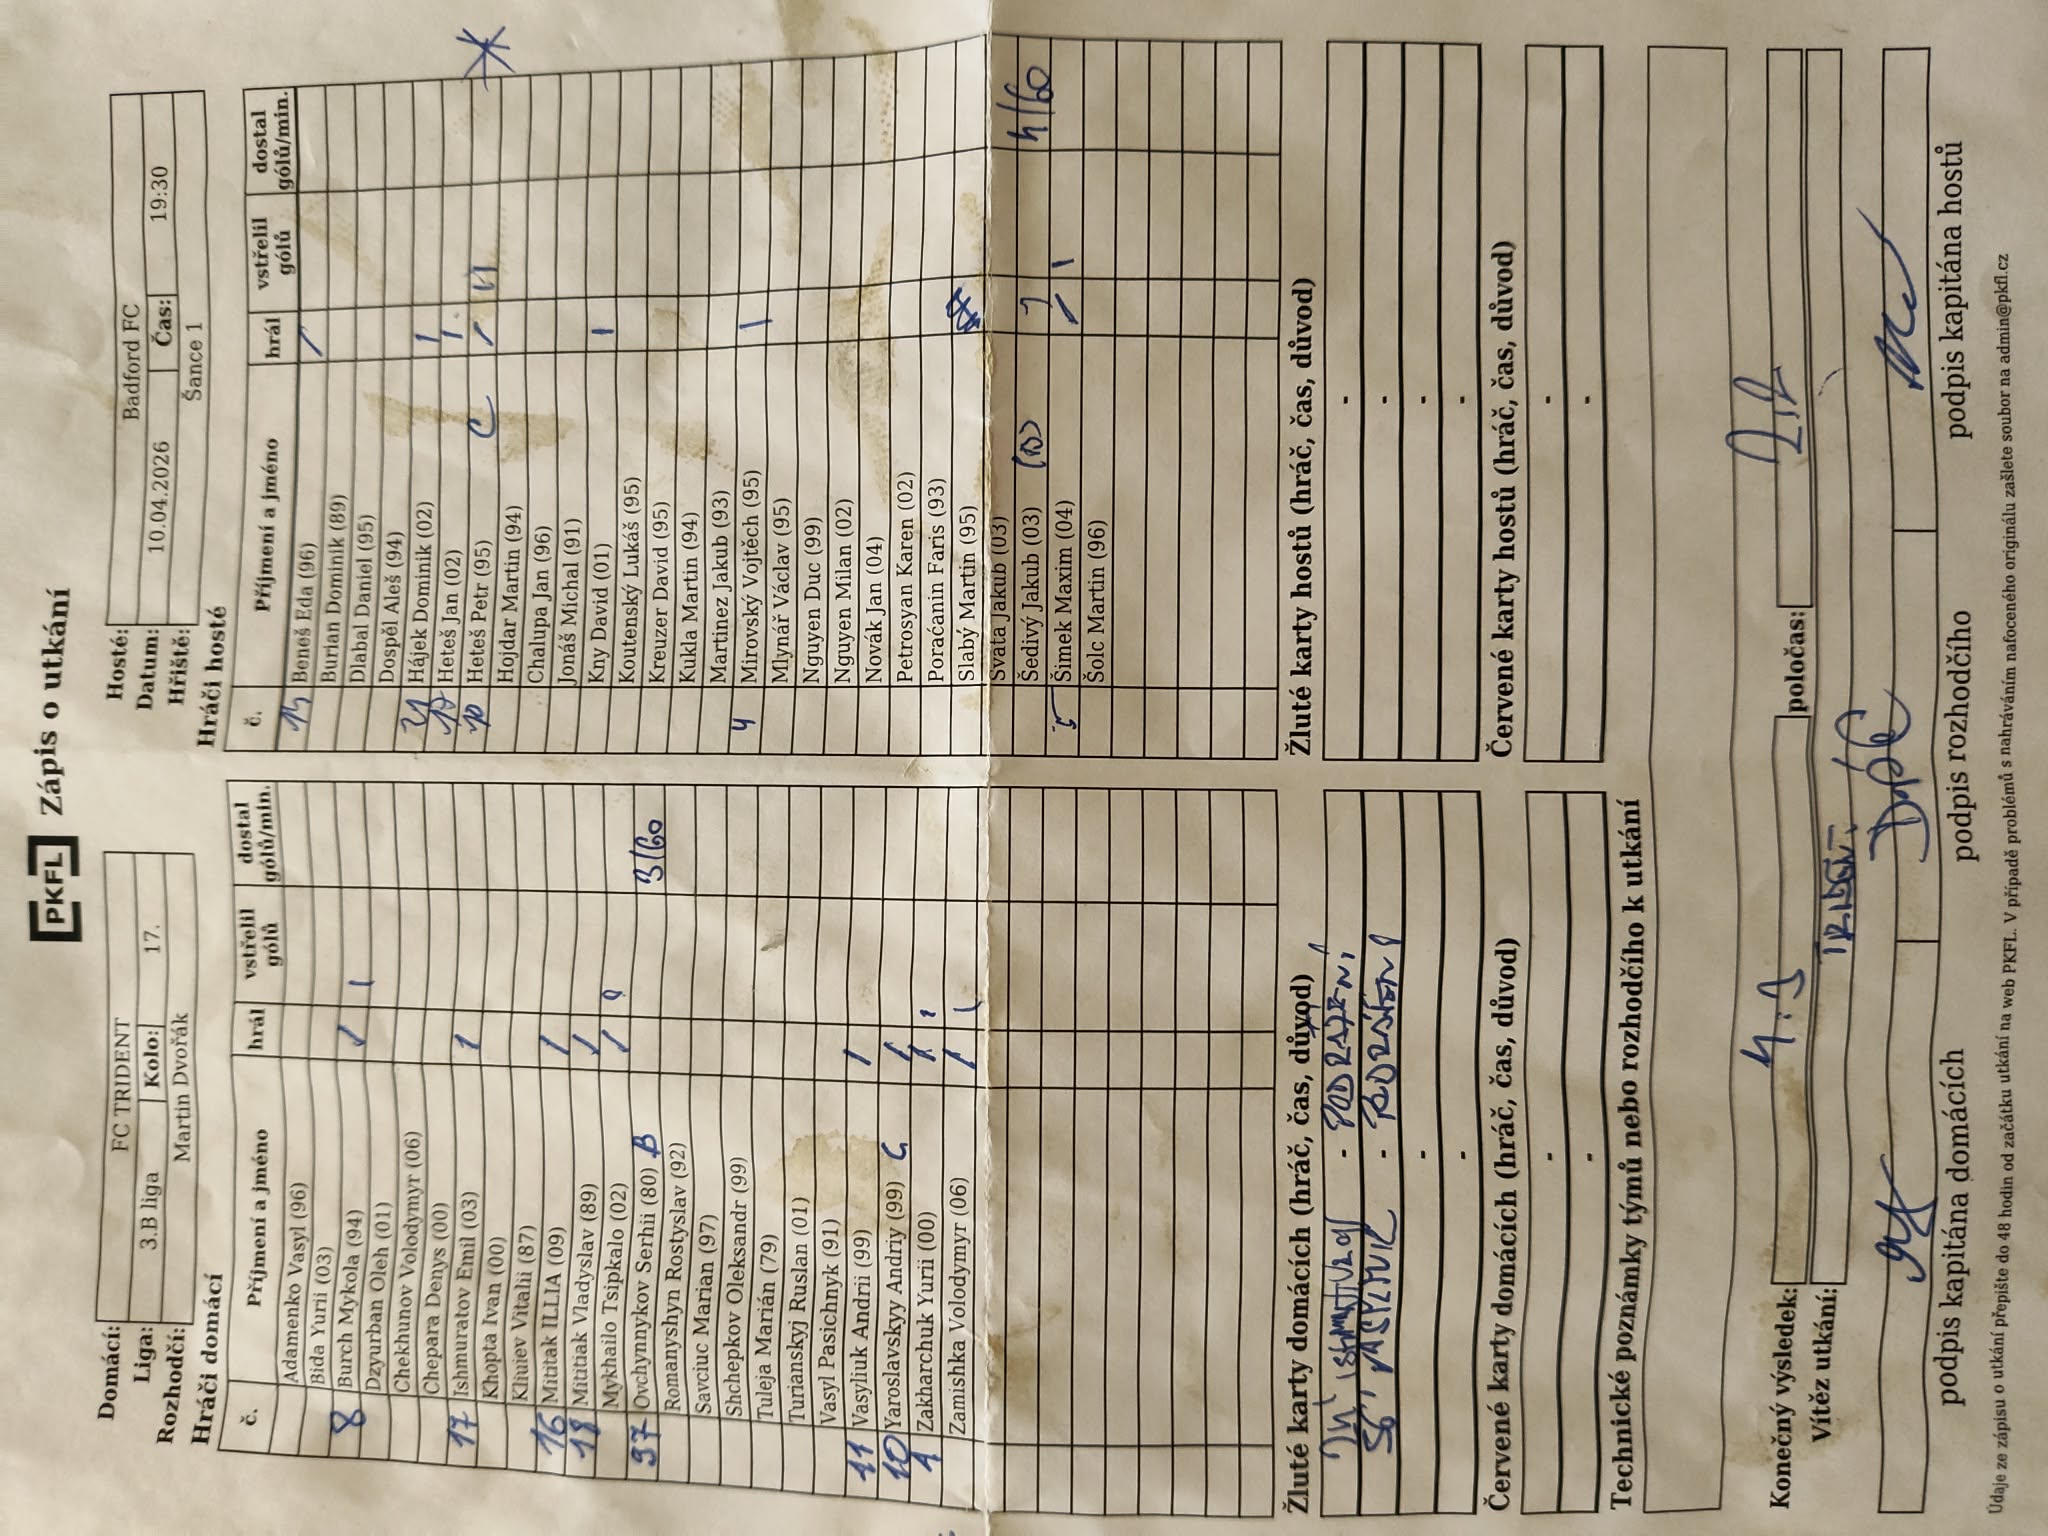 PKFL Zápis o utkání
Domácí: FC TRIDENT
Liga: 3.B liga Kolo: 17.
Rozhodčí: Martin Dvořák
Hráči domácí
č. Příjmení a jméno hrál vstřelil gólů dostal gólů/min.
Adamenko Vasyl (96)
Bida Yurii (03)
8 Burch Mykola (94) / 1
Dzyurban Oleh (01)
Chekhunov Volodymyr (06)
Chepara Denys (00)
17 Ishmuratov Emil (03) /
Khopta Ivan (00)
Khuiev Vitalii (87)
16 Mititak ILLIA (09) /
18 Mititiak Vladyslav (89) /
Mykhailo Tsipkalo (02) /
37 Ovchynnykov Serhii (80) B 3/60
Romanyshyn Rostyslav (92)
Savciuc Marian (97)
Shchepkov Oleksandr (99)
Tuleja Marián (79)
Turianskyj Ruslan (01)
Vasyl Pasichnyk (91)
11 Vasyliuk Andrii (99) /
10 Yaroslavskyy Andriy (99) C /
1 Zakharchuk Yurii (00) / 1
Zamishka Volodymyr (06) / 1
Žluté karty domácích (hráč, čas, důvod)
- PODRAŽENÍ
- PODRAŽENÍ
-
-
Červené karty domácích (hráč, čas, důvod)
-
-
Hosté: Badford FC
Datum: 10.04.2026 Čas: 19:30
Hřiště: Šance 1
Hráči hosté
č. Příjmení a jméno hrál vstřelil gólů dostal gólů/min.
14 Beneš Eda (96) /
Burian Dominik (89)
Dlabal Daniel (95)
Dospěl Aleš (94)
21 Hájek Dominik (02) /
17 Heteš Jan (02) /
10 Heteš Petr (95) C / 11
Hojdar Martin (94)
Chalupa Jan (96)
Jonáš Michal (91)
Kny David (01) /
Koutenský Lukáš (95)
Kreuzer David (95)
Kukla Martin (94)
Martinez Jakub (93)
4 Mirovský Vojtěch (95) /
Mlynář Václav (95)
Nguyen Duc (99)
Nguyen Milan (02)
Novák Jan (04)
Petrosyan Karen (02)
Poraćanin Faris (93)
Slabý Martin (95)
Svata Jakub (03)
Šedivý Jakub (03) (B) 4/60
5 Šimek Maxim (04) / 1
Šolc Martin (96)
Žluté karty hostů (hráč, čas, důvod)
-
-
-
-
Červené karty hostů (hráč, čas, důvod)
-
-
Technické poznámky týmů nebo rozhodčího k utkání
Konečný výsledek: 4:3 poločas:
Vítěz utkání: TRIDENT
podpis kapitána domácích podpis rozhodčího podpis kapitána hostů
Údaje ze zápisu o utkání přepište do 48 hodin od začátku utkání na web PKFL. V případě problémů s nahráváním nafoceného originálu zašlete soubor na admin@pkfl.cz